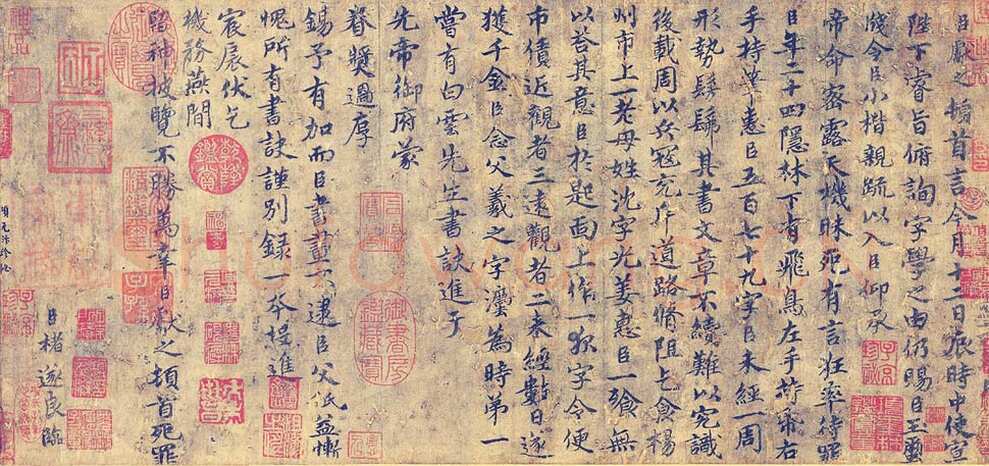 臣獻之頓首言今月十二日辰時中使宣
陛下睿旨俯詢字學之由仍賜臣玉璽
牋令臣小楷親疏以入臣仰承
帝命密露天機昧死有言狂率待罪
臣年二十四隱林下有飛鳥左手持帋右
手持筆惠臣五百七十九字臣未經一周
形勢髣髴其書文章不續難以究識
後載周以兵寇充斥道路脩阻乞食揚
州市上一老母姓沈字光姜惠臣一飱無
以荅其意臣於匙面上作一夜字令便
市債近觀者三遠觀者二未經數日遂
獲千金臣念父羲之字灋為時第一
嘗有白雲先生書訣進于
先帝御府蒙
眷獎過厚
錫予有加而臣書畫不逮臣父祇益慚
愧所有書訣謹別録一本投進
宸扆伏乞
機務燕閒
留神披覽不勝萬幸臣獻之頓首死罪
臣褚遂良臨